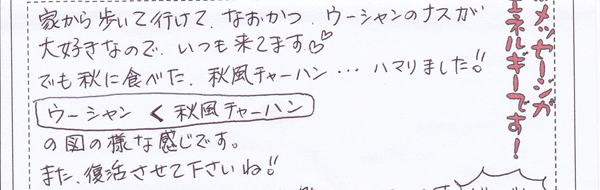 家から歩いて行けて、なおかつ、ウーシャンのナスが
大好きなので、いつも来てます♡
でも秋に食べた、秋風チャーハン…ハマりました!!
ウーシャン < 秋風チャーハン
の図の様な感じです。
また、復活させて下さいね!!
メッセージが
エネルギーです!